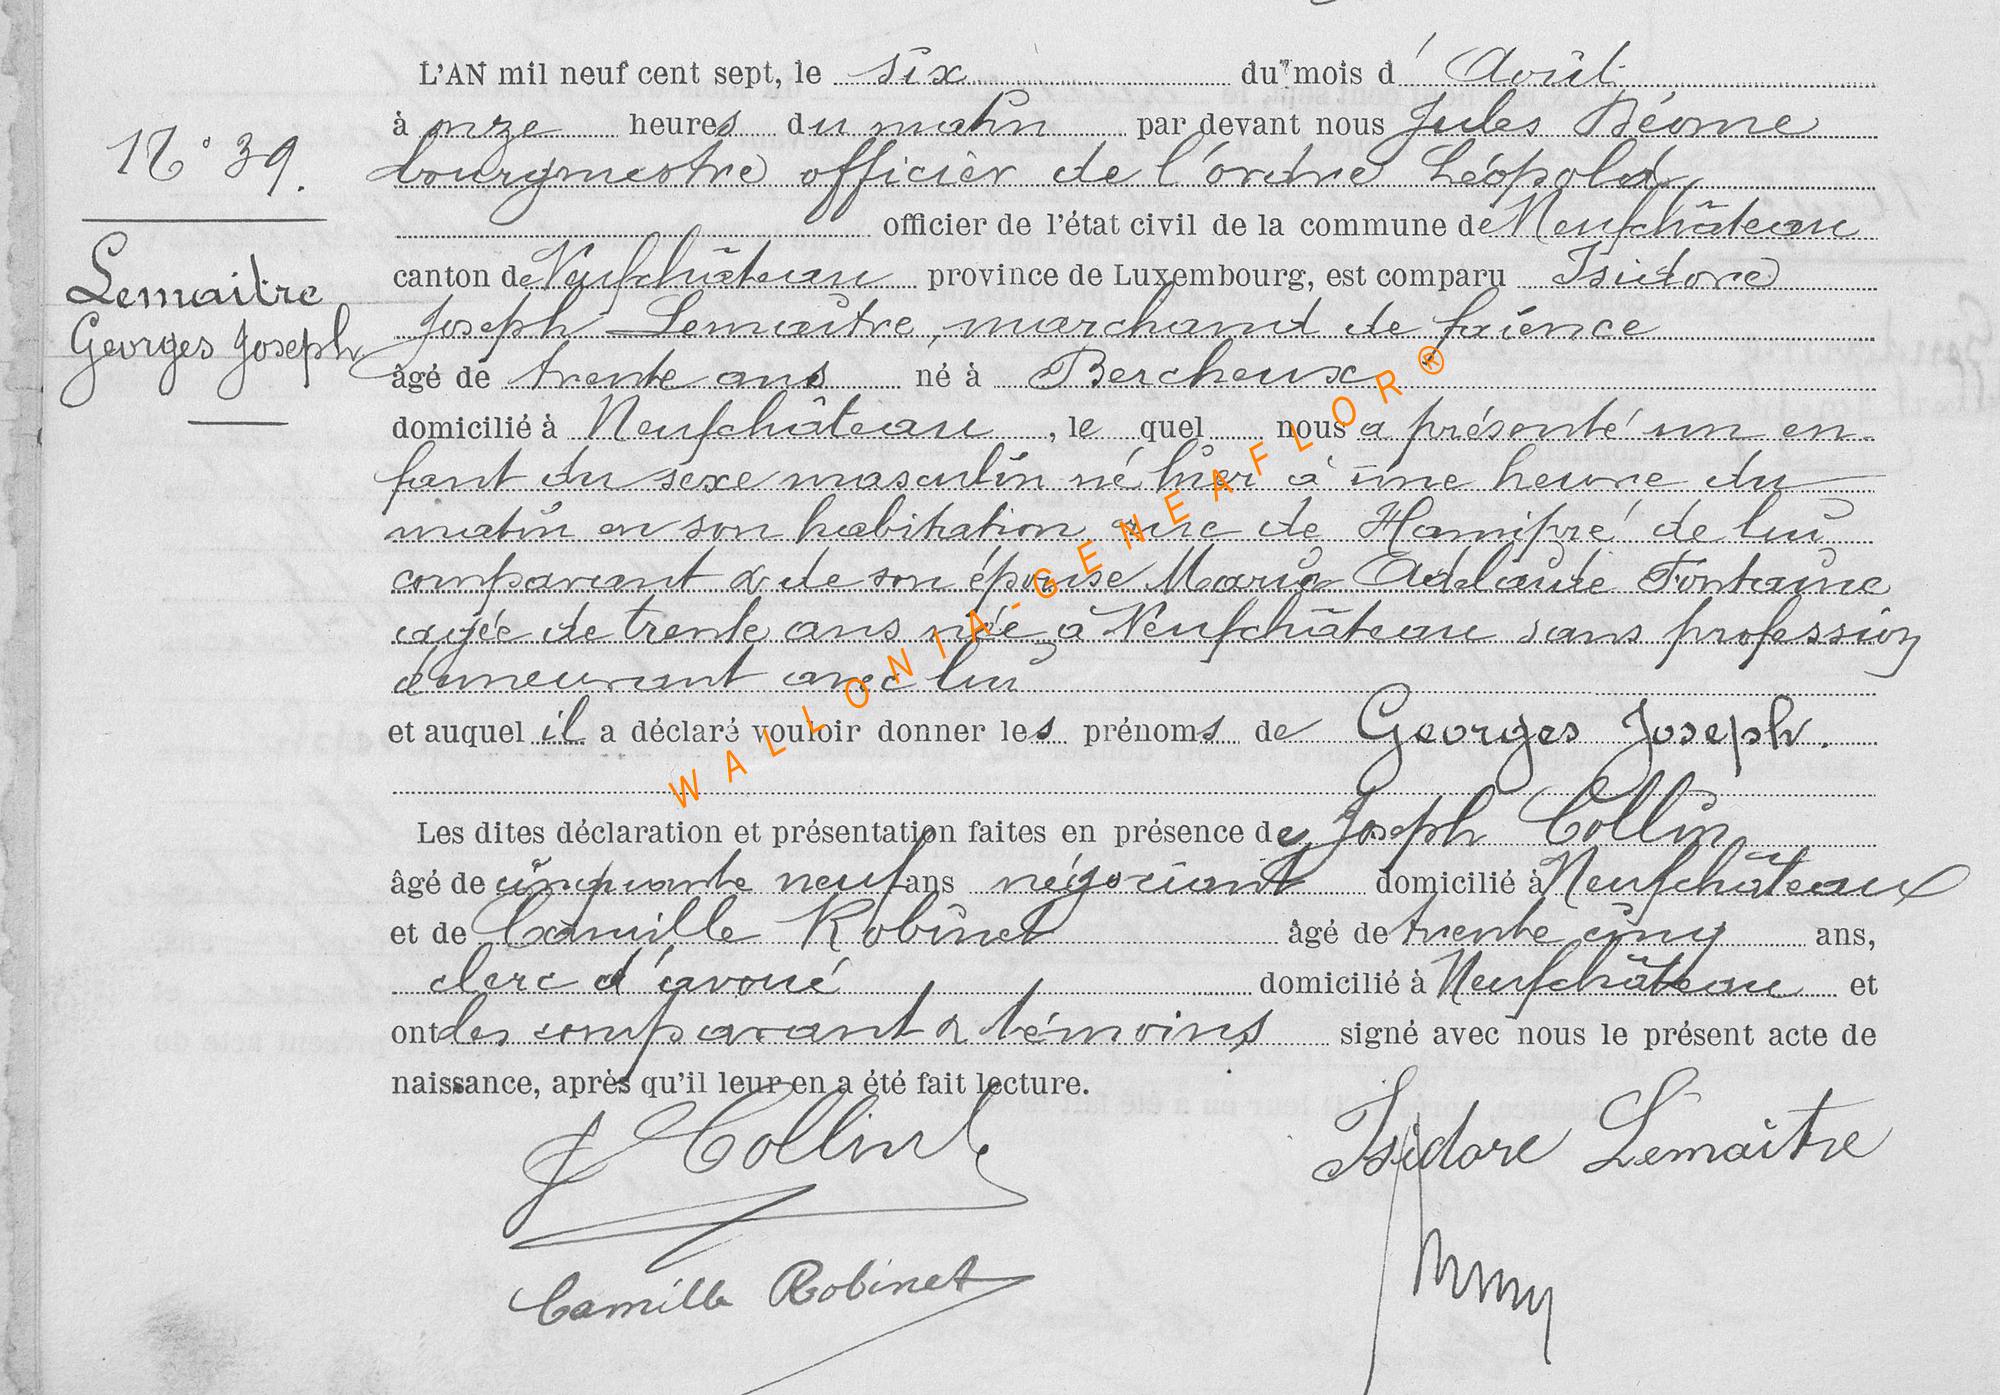 L'AN mil neuf cent sept, le six du mois d' Août
à onze heures du matin par devant nous Jules
N° 39. bourgmestre officier de l'ordre Léopold,
officier de l'état civil de la commune de Neufchâteau
Lemaitre canton de Neufchâteau province de Luxembourg, est comparu Isidore
Georges Joseph Joseph Lemaître, marchand de faïence
âgé de trente ans né à Bercheux
domicilié à Neufchâteau, le quel nous a présenté un en-
fant du sexe masculin né hier à une heure du
matin en son habitation rue de Hamipré de lui
comparant & de son épouse Maria Adelaïde Fontaine
agée de trente ans née à Neufchâteau sans profession
demeurant avec lui
et auquel il a déclaré vouloir donner les prénoms de Georges Joseph.
Les dites déclaration et présentation faites en présence de Joseph Collin
âgé de cinquante neuf ans négociant domicilié à Neufchâteau
et de Camille Robinet âgé de trente cinq ans,
clerc d'avoué domicilié à Neufchâteau et
ont les comparant & témoins signé avec nous le présent acte de
naissance, après qu'il leur en a été fait lecture.
J Collin Isidore Lemaître
Camille Robinet
WALLONIA-GENEAFLOR®